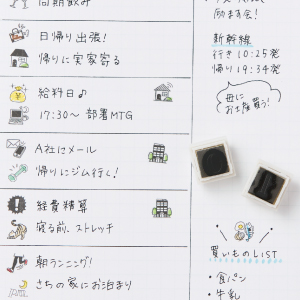 同期飲み
日帰り出張!
帰りに実家寄る
給料日♪
17:30〜 部署MTG
A社にメール
帰りにジム行く!
経費精算
寝る前、ストレッチ
朝ランニング!
さちの家にお泊まり
励ます会!
新幹線
行き10:25発
帰り19:34発
母に
お土産買う!
買いものLIST
・食パン
・牛乳